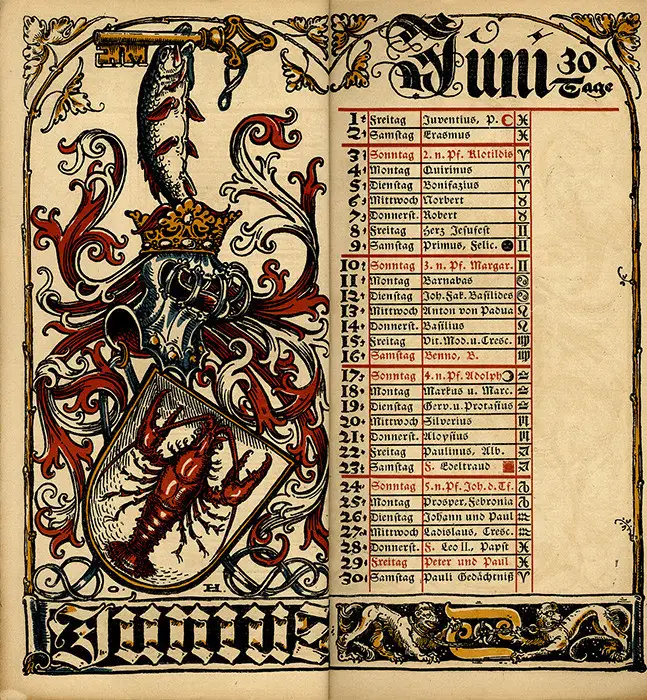 Juni 30 Tage
1 Freitag Juventius, P. ♓
2 Samstag Erasmus ♓
3 Sonntag 2. n. Pf. Klotildis ♈
4 Montag Quirinus ♈
5 Dienstag Bonifazius ♈
6 Mittwoch Norbert ♉
7 Donnerst. Robert ♉
8 Freitag Herz Jesufest ♊
9 Samstag Primus, Felic. ♊
10 Sonntag 3. n. Pf. Margar. ♊
11 Montag Barnabas ♋
12 Dienstag Joh. Fak. Basilides ♋
13 Mittwoch Anton von Padua ♌
14 Donnerst. Basilius ♌
15 Freitag Vit. Mod. u. Cresc. ♍
16 Samstag Benno, B. ♍
17 Sonntag 4. n. Pf. Adolph ♎
18 Montag Markus u. Marc. ♎
19 Dienstag Gerv. u. Protasius ♎
20 Mittwoch Silverius ♏
21 Donnerst. Aloysius ♏
22 Freitag Paulinus, Alb. ♐
23 Samstag F. Edeltraud ♐
24 Sonntag 5. n. Pf. Joh. d. Tf. ♑
25 Montag Prosper, Febronia ♑
26 Dienstag Johann und Paul ♒
27 Mittwoch Ladislaus, Cresc. ♒
28 Donnerst. F. Leo II., Papst ♓
29 Freitag Peter und Paul ♓
30 Samstag Pauli Gedächtniß ♈
O. H.